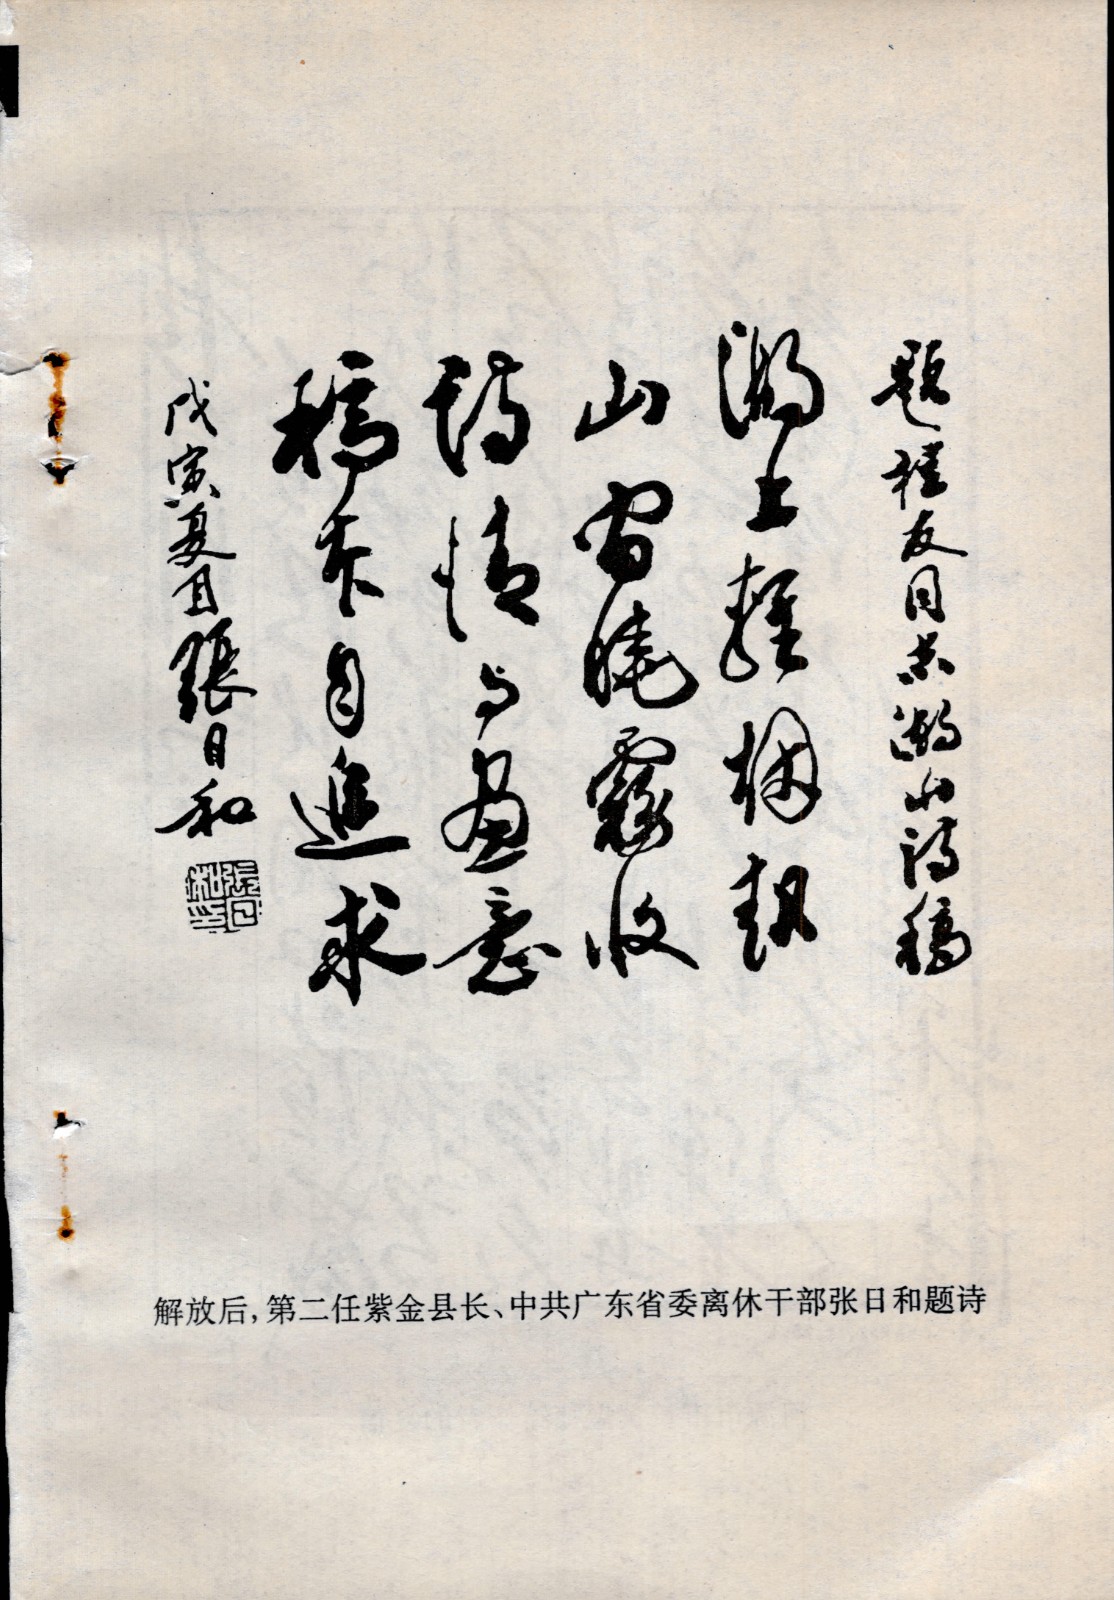 題友同志湖山诗稿
湖上輕
山窗曉霧收
诗情与畫意
稿自追求
戊寅夏日張日和
張日和印
解放后,第二任紫金县长、中共广东省委离休干部张日和题诗